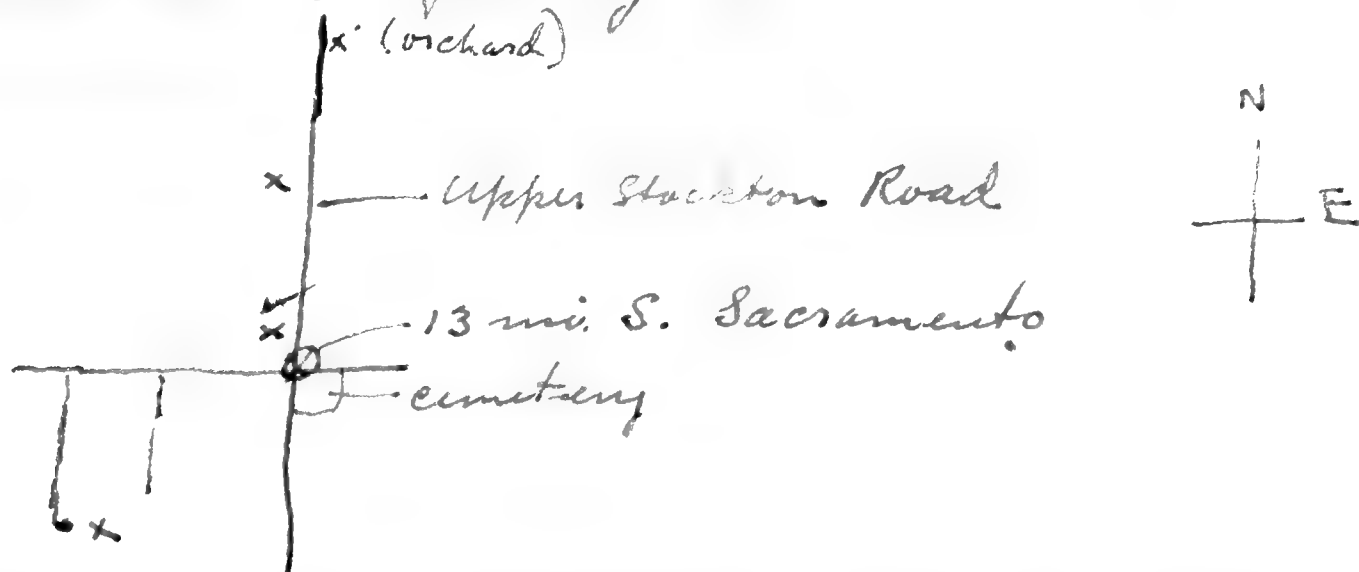 x (orchard)
N
x
Upper Stockton Road
E
x
13 mi. S. Sacramento
cemetery
x